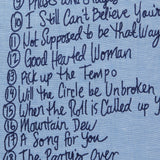 ⑨ Phases and Stages
⑩ I Still Can't Believe Your
⑪ Not Supposed to be That Way
⑫ Good Hearted Woman
⑬ Pick up the Tempo
⑭ Will the Circle be Unbroken
⑮ When the Roll is Called up y
⑯ Mountain Dew
⑰ A Song for You
⑱ The Party's Over